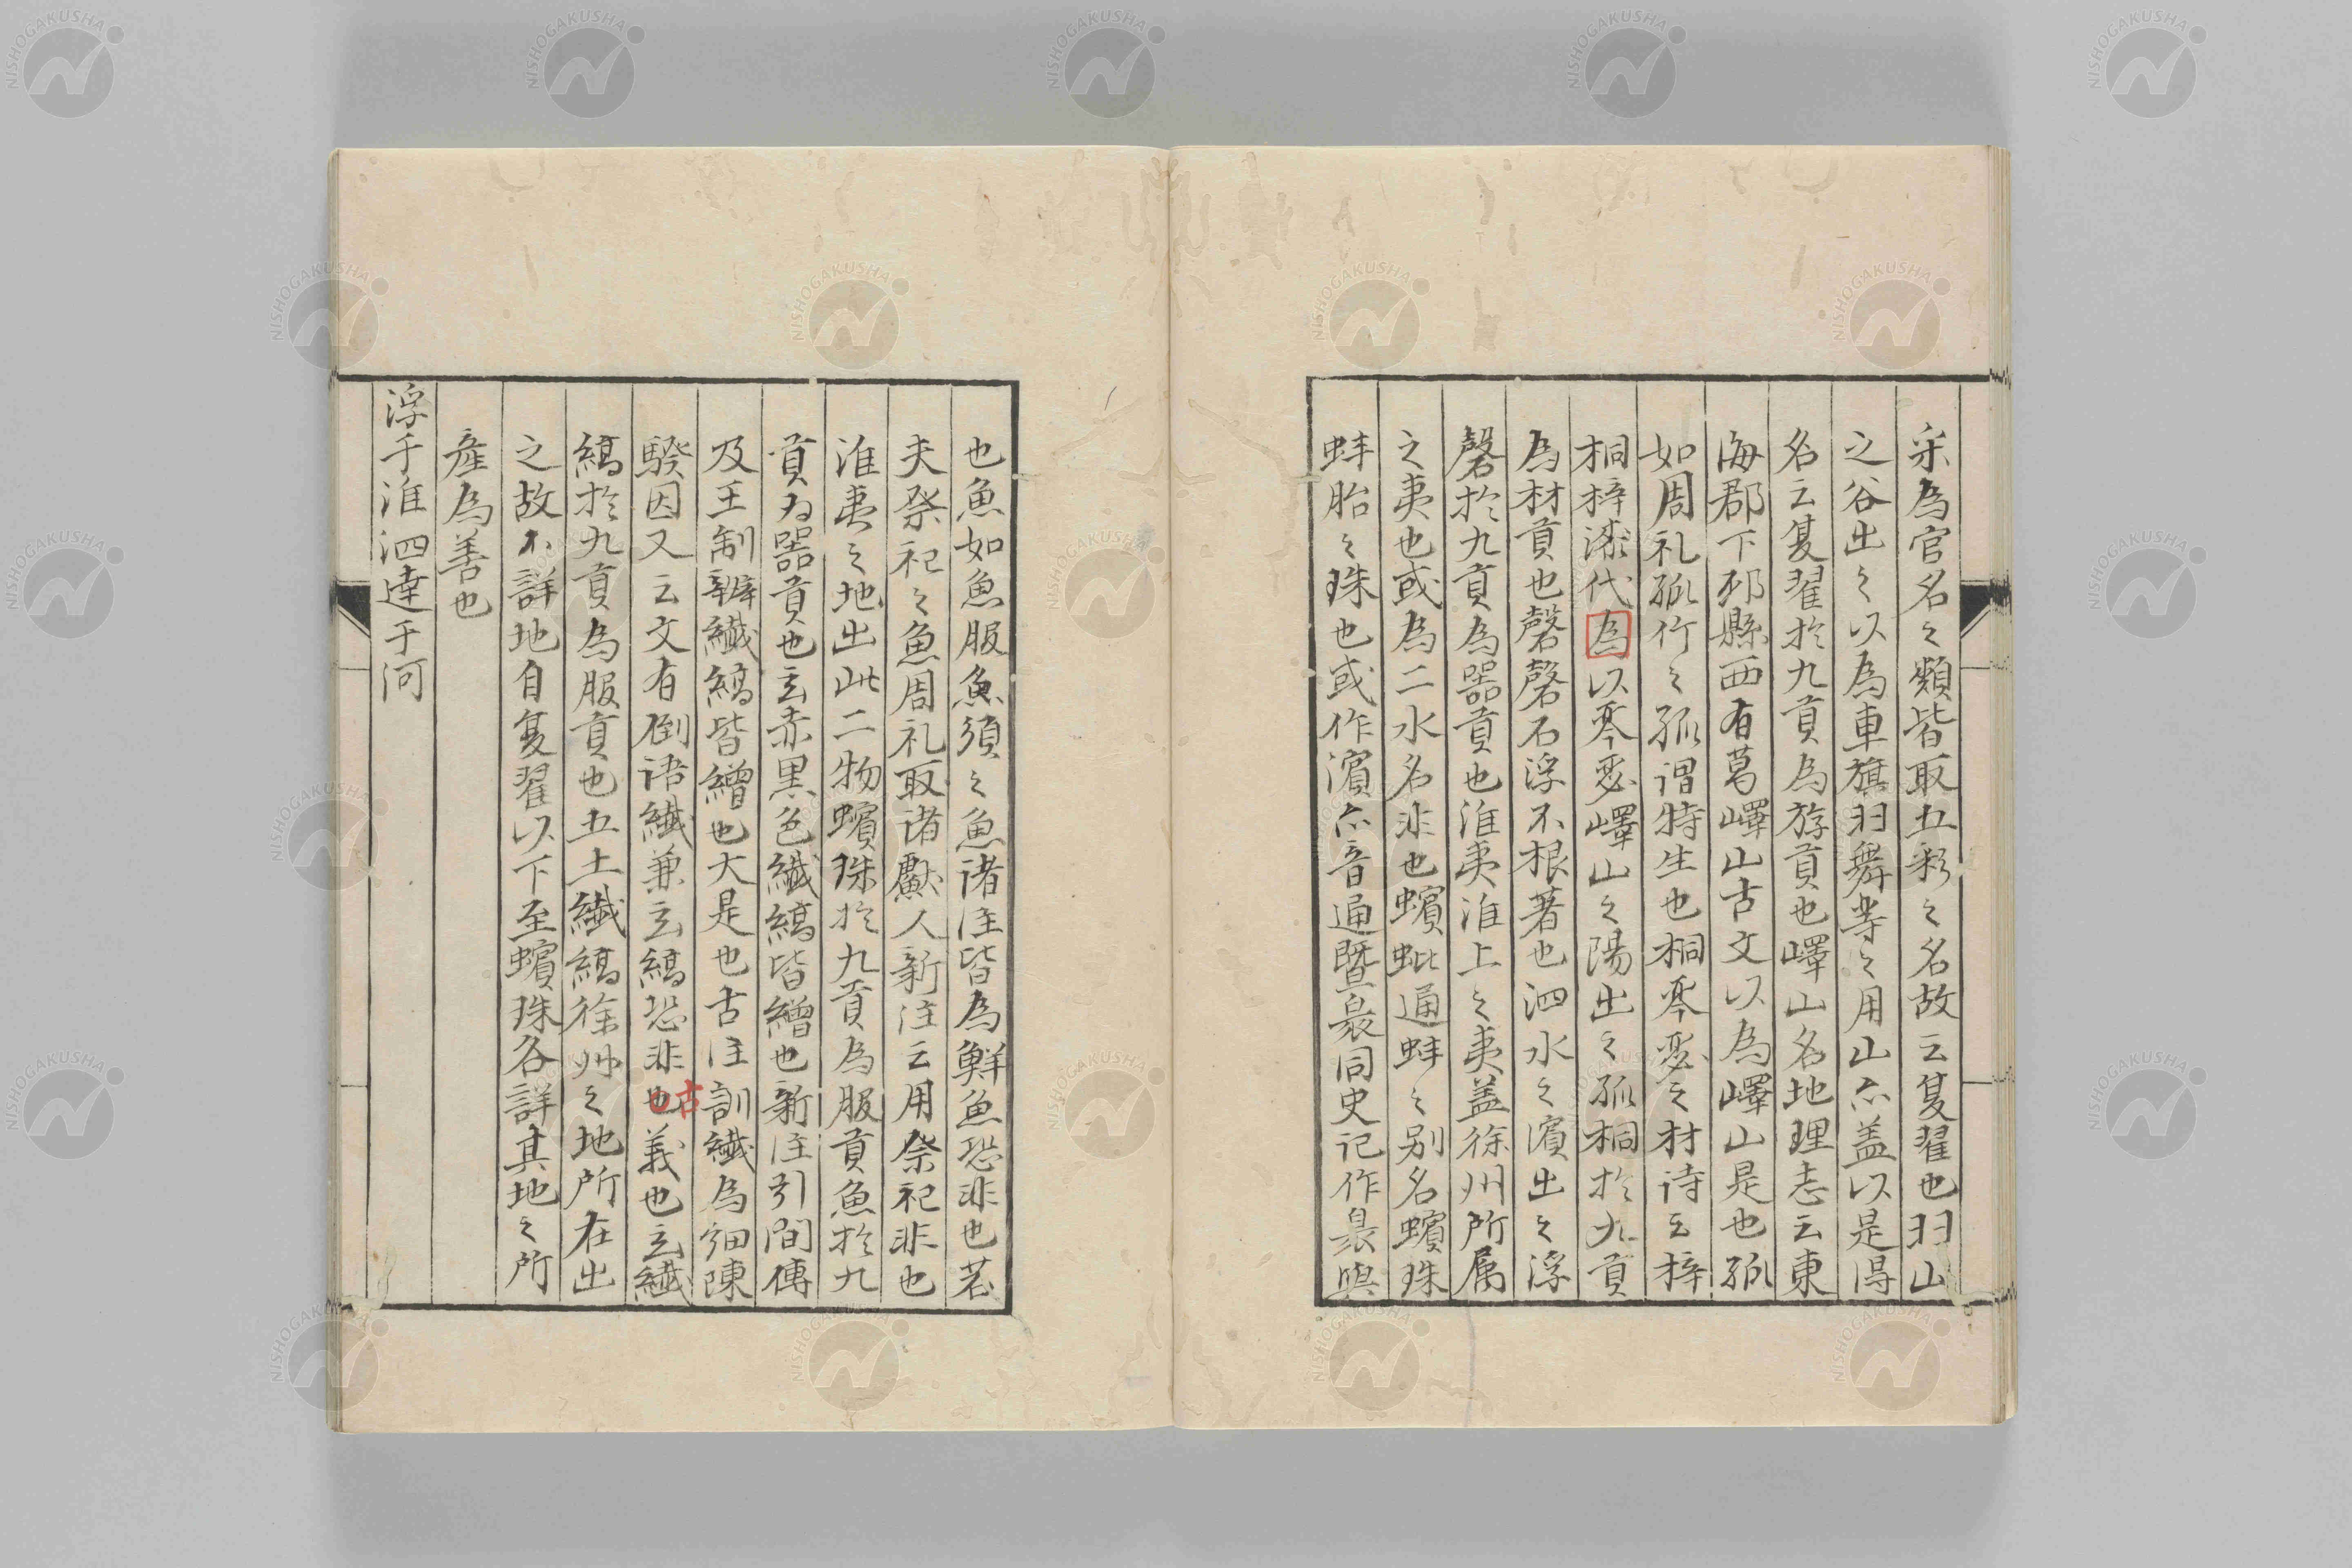 采為官名之類皆取五彩之名故云夏翟也羽山
之谷出之以為車旗羽舞等之用山亦盖以是得
名云夏翟於九貢為斿貢也嶧山名地理志云東
海郡下邳縣西有葛嶧山古文以為嶧山是也孤
如周礼孤竹之孤謂特生也桐琴瑟之材诗云梓
桐梓漆代為以琴瑟嶧山之陽出之孤桐於九貢
為材貢也磬磬石浮不根著也泗水之濱出之浮
磬於九貢為器貢也淮夷淮上之夷盖徐州所属
之夷也或為二水名非也蠙蚍通蚌之别名蠙珠
蚌胎之珠也或作濱亦音通曁泉同史记作泉與
也魚如魚服魚須之魚诸注皆為鮮魚恐非也若
夫祭祀之魚周礼取诸𩼪人新注云用祭祀非也
淮夷之地出此二物蠙珠於九貢為服貢魚於九
貢為器貢也玄赤黒色纎縞皆繒也新注引間傳
及王制辨纎縞皆繒也大是也古注訓纎為细陳
騤因又云文有倒语纎兼玄縞恐非也古義也玄纎
縞於九貢為服貢也五土纎縞徐州之地所在出
之故不詳地自夏翟以下至蠙珠各詳其地之所
産為善也
浮于淮泗達于河
NISHOGAKUSHA